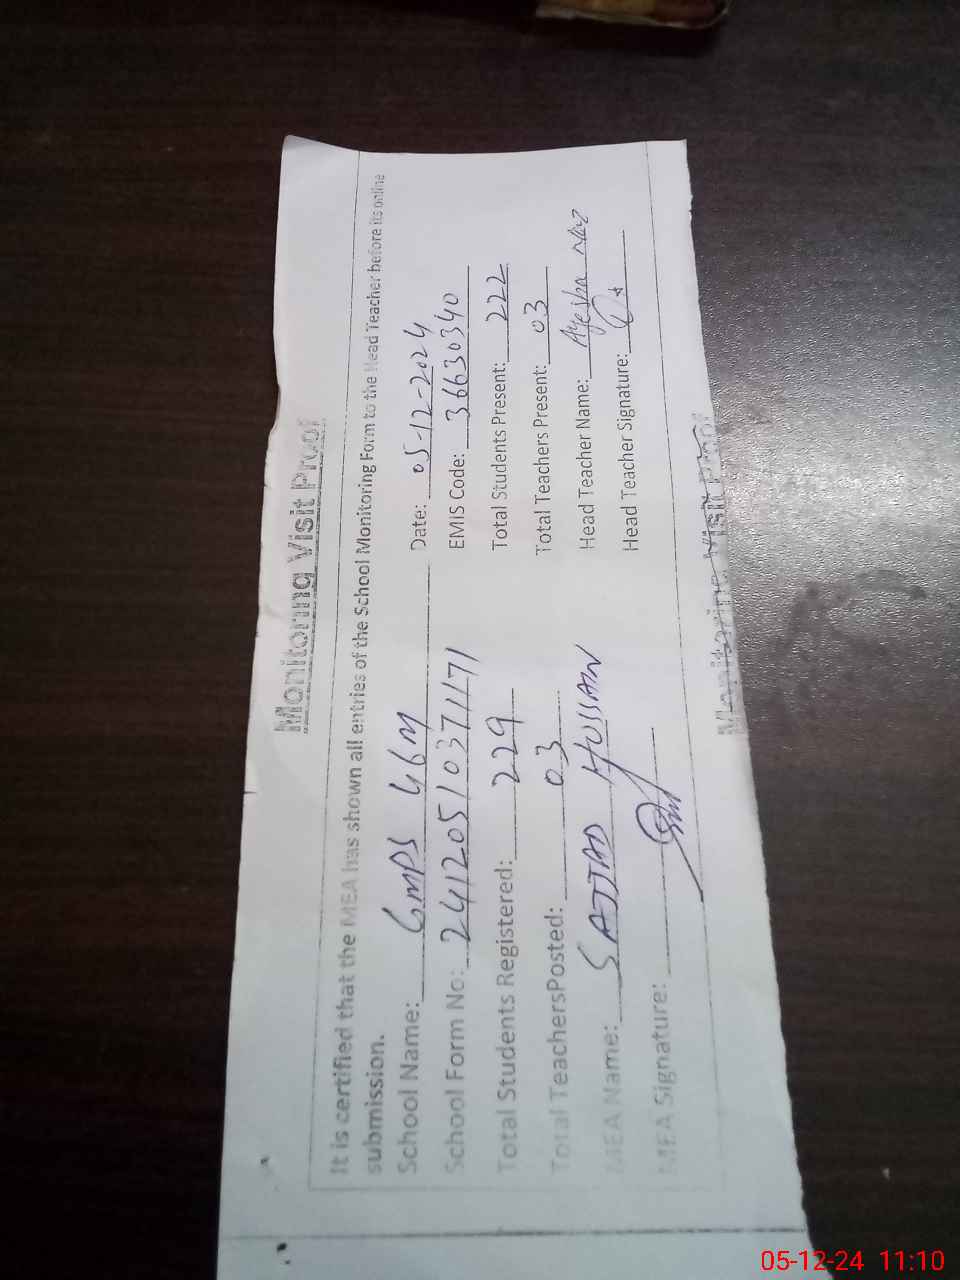 Monitoring Visit Proof
It is certified that the MEA has shown all entries of the School Monitoring Form to the Head Teacher before its online
submission.
School Name: GMPS 46M Date: 05-12-2024
School Form No: 24120510371171 EMIS Code: 36630340
Total Students Registered: 229 Total Students Present: 222
Total TeachersPosted: 03 Total Teachers Present: 03
MEA Name: SAJJAD HUSSAIN Head Teacher Name: Ayesha Naz
MEA Signature: Head Teacher Signature:
Monitoring Visit Proof
05-12-24 11:10